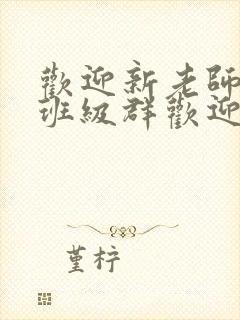 歡迎新老師
班級群歡迎
堇梓